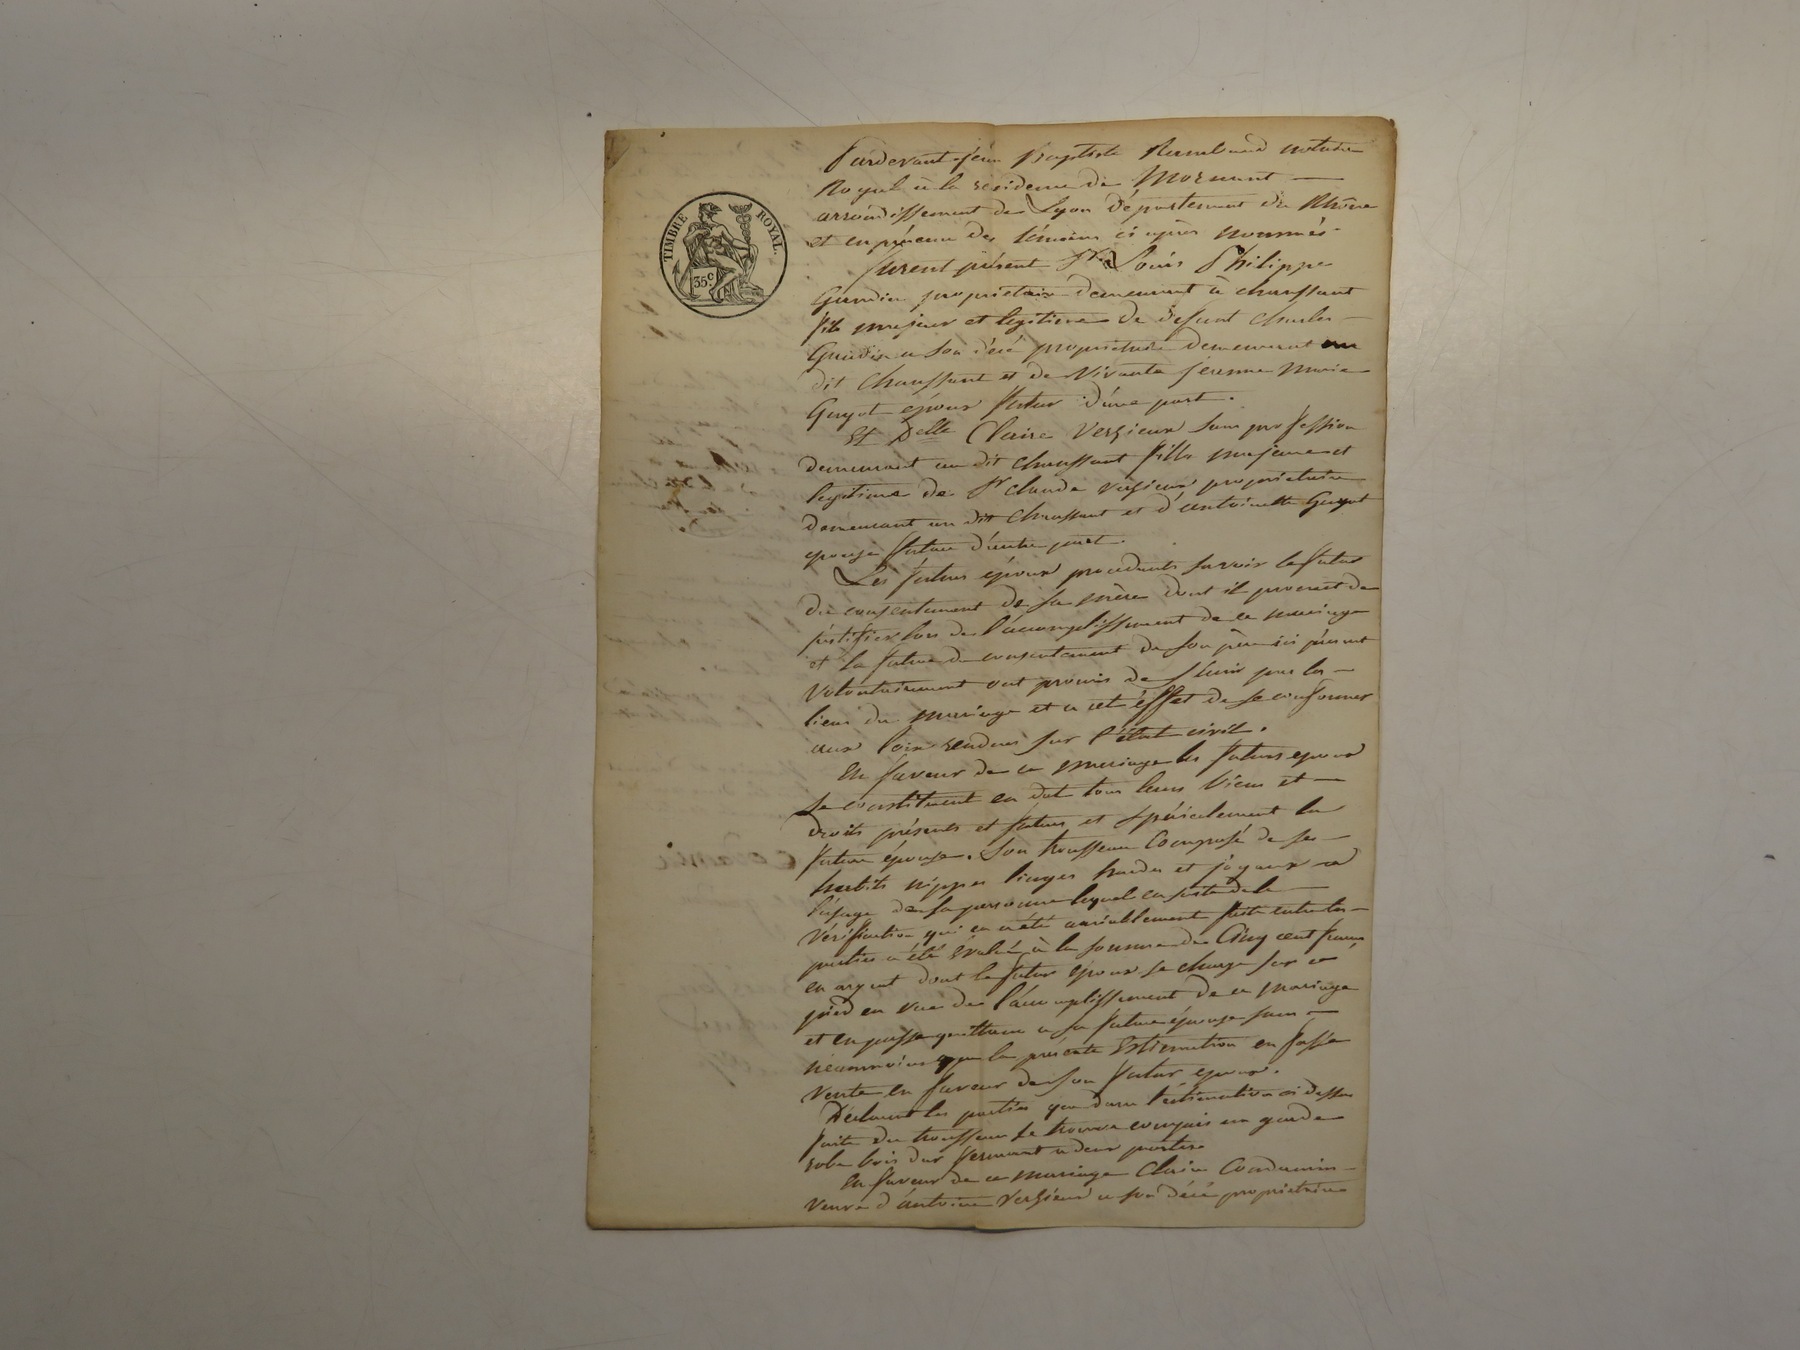 TIMBRE ROYAL.
35.c
Pardevant Jean Baptiste notaire
Royal à la residence de Mornant —
arrondissement de Lyon département du Rhône
et en présence des témoins ci après nommés
furent présent Sr Louis Philippe
propriétaire demeurant à chaussant
fils majeur et legitime de defunt charles —
a son décé propriétaire demeurant au
dit Chaussant et de Vivante jeanne Marie
Guyot époux futur d'une part.
Et Delle Claire Verzieux sans profession
demeurant au dit chaussant fille majeure et
legitime de Sr claude verzieux propriétaire
demeurant au dit Chaussant et d'antoinette Guyot
epouse future d'autre part.
Les futurs époux procedants savoir le futur
du consentement de sa mère dont il promet de
justifier lors de l'accomplissement de ce mariage
et la future du consentement de son père ici présent
volontairement ont promis de s'unir par les —
liens du mariage et a cet éffet de se conformer
aux loix rendues sur l'état civil.
En faveur de ce mariage les futurs epoux
se constituent en dot tous leurs biens et —
droits présents et futurs et spécialement la
future épouse. Son trousseau Composé de ses —
habits nippes linges hardes et joyaux a
l'usage de sa personne lequel en suite de la —
vérification qui en a été amiablement faite entre les —
parties a été évalué à la somme de Cinq cent francs
en argent dont le futur époux se charge sur ce
pied en vue de l'accomplissement de ce mariage
et en passe quittance a sa future épouse sans —
néanmoins que la présente Estimation en fasse
vente en faveur de son futur epoux.
Déclarent les parties que dans l'éstimation ci dessus
faite du trousseau se trouve compris un garde
robe bois dur fermant a deux portes
En faveur de ce mariage Claire Condamin —
veuve d'antoine verzieux a son décé propriétaire